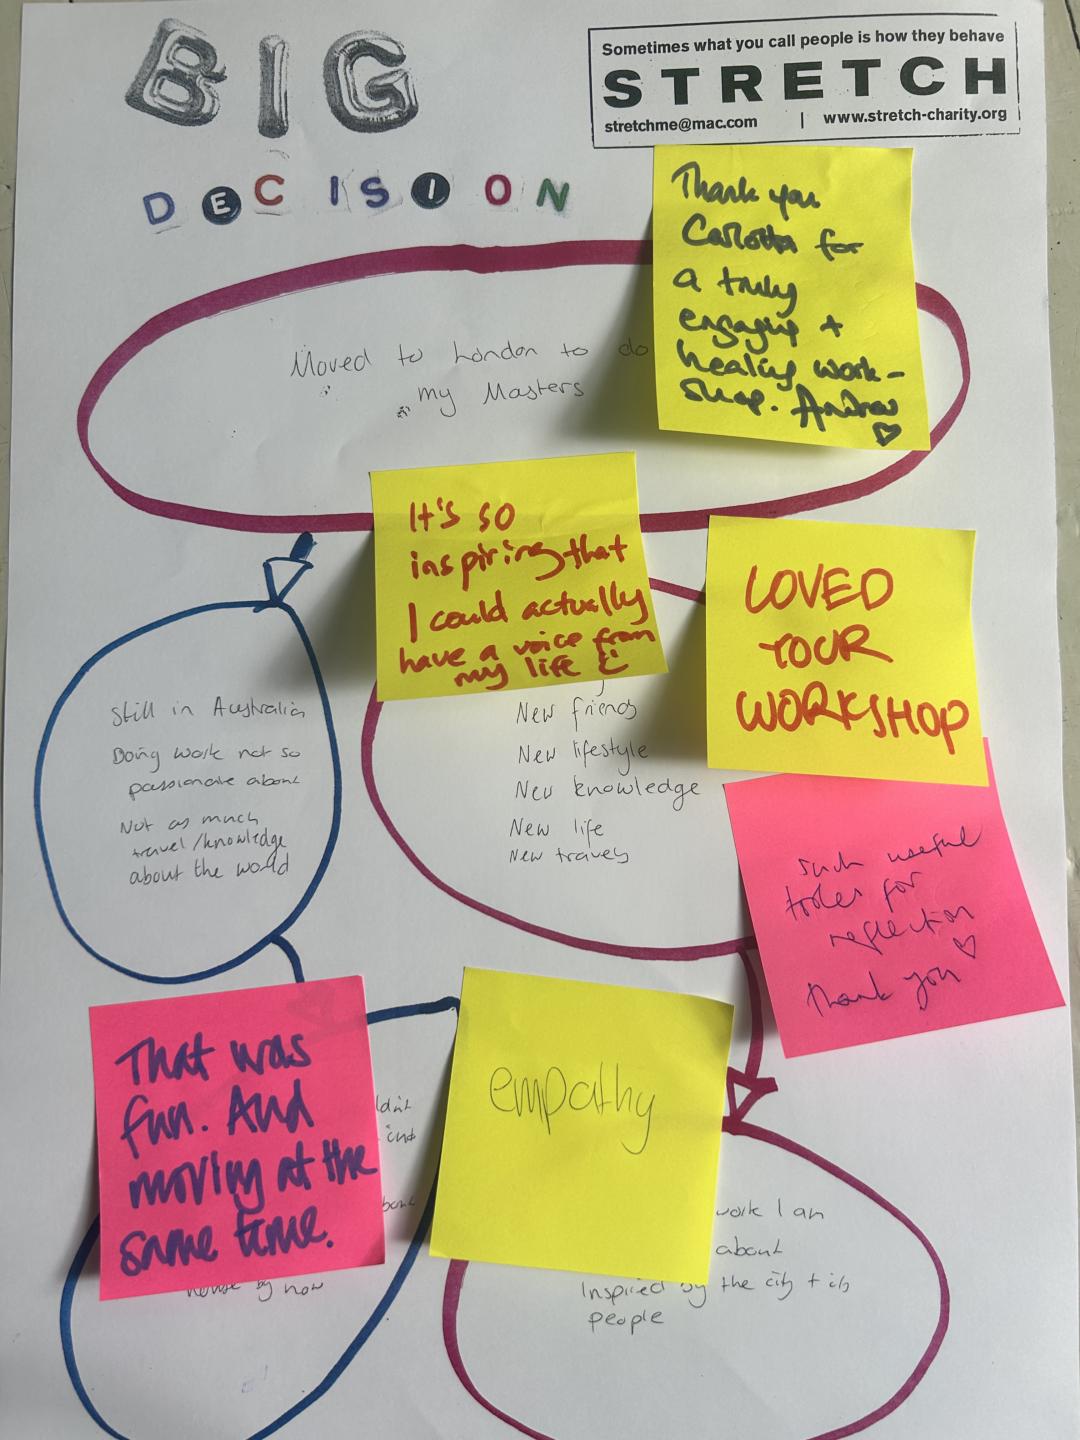 BIG
DECISION
Sometimes what you call people is how they behave
STRETCH
stretchme@mac.com | www.stretch-charity.org
Thank you
Carlotta for
a truly
engaging +
healing work-
shop. Andrea
Moved to London to do
my Masters
It's so
inspiring that
I could actually
have a voice from
my life
LOVED
YOUR
WORKSHOP
Still in Australia
Doing work not so
passionate about
Not as much
travel/knowledge
about the world
New friends
New lifestyle
New knowledge
New life
New travels
such useful
for
reflection
Thank you
That was
fun. And
moving at the
same time.
by now
empathy
work I am
about
Inspired by the city + its
people